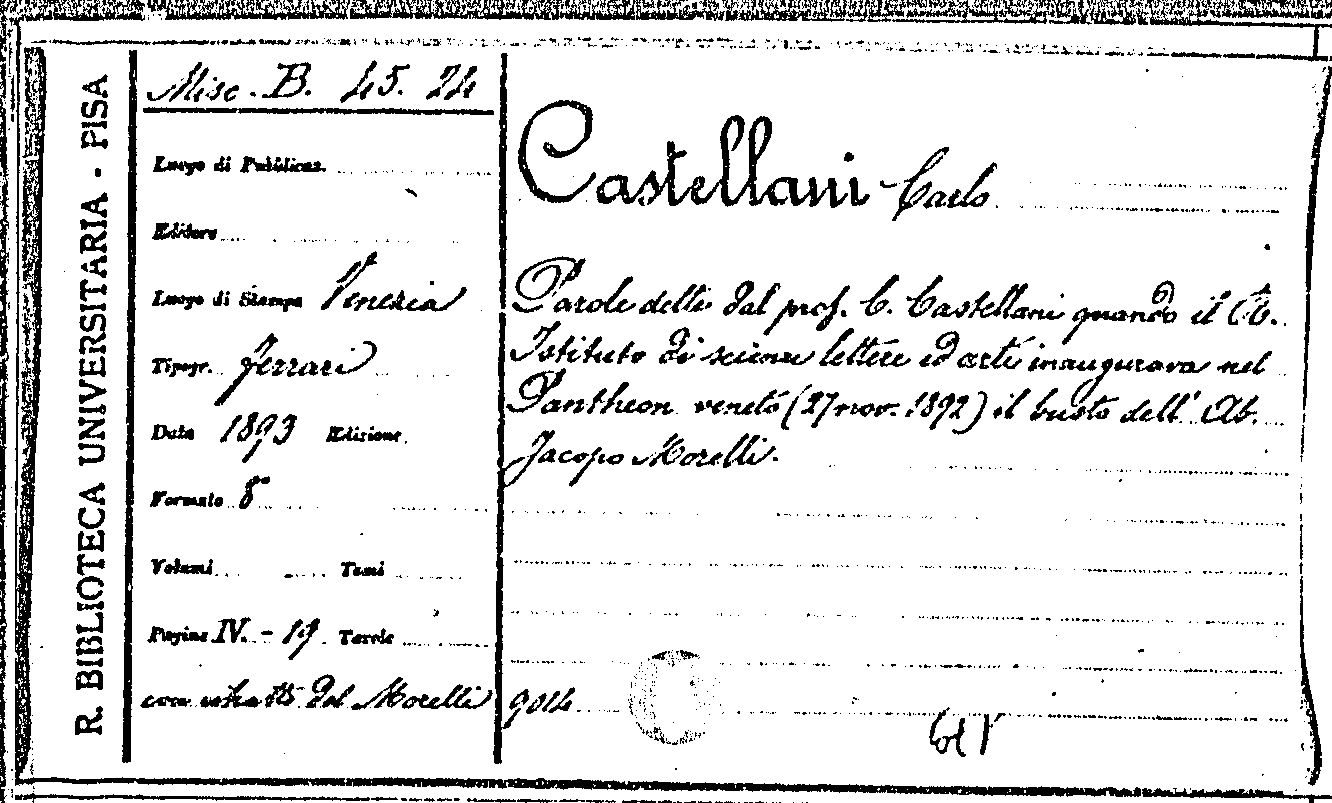 R. BIBLIOTECA UNIVERSITARIA - PISA
Misc. B. 45. 24
Luogo di Pubblicaz.
Editore
Luogo di Stampa Venezia
Tipogr. Ferrari
Data 1893 Edizione
Formato 8°
Volumi Tomi
Pagine IV. - 19 Tavole
con ritratto del Morelli
Castellani Carlo
Parole dette dal prof. C. Castellani quando il R.
Istituto di scienze lettere ed arti inaugurava nel
Pantheon veneto (27 nov. 1892) il busto dell' Ab.
Jacopo Morelli.
9014